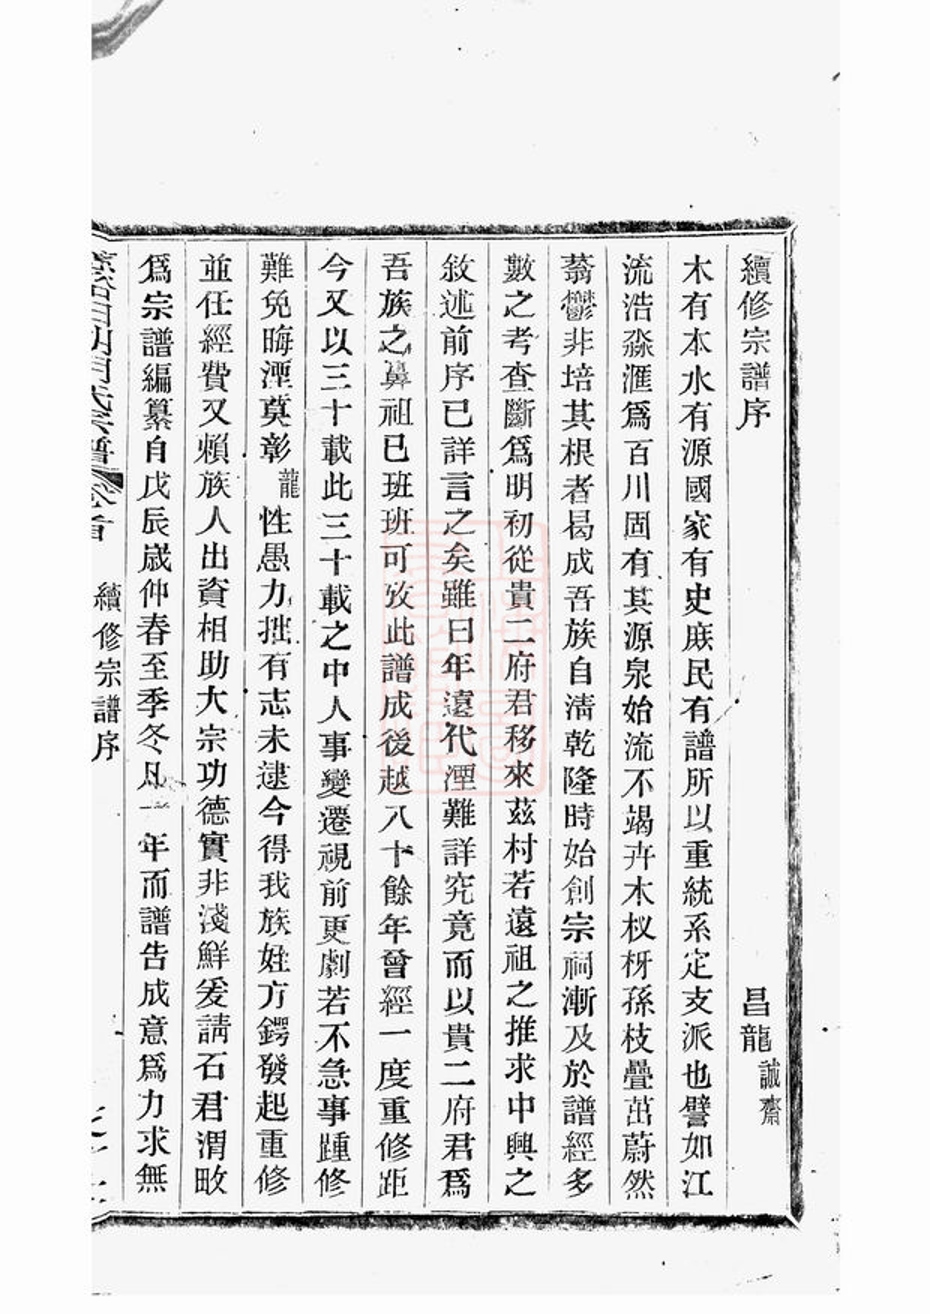 續修宗譜序 昌龍誠齋
木有本水有源國家有史庶民有譜所以重統系定支派也譬如江
流浩淼滙爲百川固有其源泉始流不竭卉木杈枒孫枝疊茁蔚然
蓊鬱非培其根者曷成吾族自淸乾隆時始創宗祠漸及於譜經多
數之考查斷爲明初從貴二府君移來茲村若遠祖之推求中興之
敘述前序已詳言之矣雖曰年遠代湮難詳究竟而以貴二府君爲
吾族之鼻祖已班班可攷此譜成後越八十餘年曾經一度重修距
今又以三十載此三十載之中人事變遷視前更劇若不急事踵修
難免晦湮莫彰龍性愚力拙有志未逮今得我族姪方鍔發起重修
並任經費又賴族人出資相助大宗功德實非淺鮮爰請石君渭畋
爲宗譜編纂自戊辰歲仲春至季冬凡一年而譜告成意爲力求無
氏宗譜 卷首 續修宗譜序